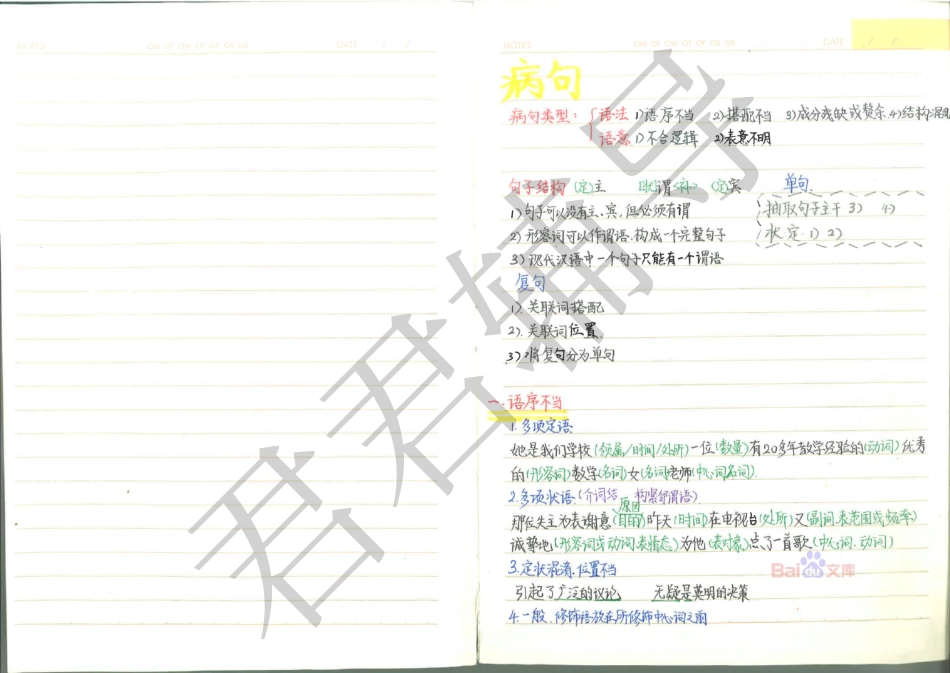 NOTES
DATE
NOTES
DATE
病句
病句类型： 语法 1)语序不当 2)搭配不当 3)成分残缺或赘余 4)结构混乱
语意 1)不合逻辑 2)表意不明
句子结构 (定)主 [状]谓<补> (定)宾 单句
1)句子可以没有主、宾，但必须有谓
抽取句子主干 3) 4)
2)形容词可以作谓语，构成一个完整句子
状定 1) 2)
3)现代汉语中一个句子只能有一个谓语
复句
1).关联词搭配
2).关联词位置
3).将复句分为单句
一.语序不当
1.多项定语
她是我们学校(领属/时间/处所)一位(数量)有20多年教学经验的(动词)优秀
的(形容词)数学(名词)女(名词)老师(中心词名词).
2.多项状语(介词结构紧邻谓语)
原因
那位失主为表谢意(目的)昨天(时间)在电视台(处所)又(副词.表范围或频率)
诚挚地(形容词或动词.表情态)为他(表对象)点了一首歌(中心词.动词)
3.定状混淆，位置不当
引起了广泛的议论 无疑是英明的决策
4.一般，修饰语放在所修饰中心词之前
君君辅导
Baidu文库